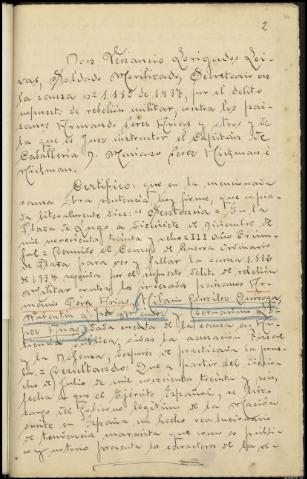 2
Don Venancio Brigados Lei-
vas, Soldado Movilizado, Secretario en
la causa nº 1.332 de 1937, por el delito
supuesto de rebelión militar, contra los pai-
sanos Armando Pérez Arias y otros y de
la que es Juez instructor el Capitán de
Caballería D. Mariano Pérez Hickman é
Hickman.
Certifico: que en la mencionada
causa obra sentencia hoy firme, que copia-
da literalmente dice: "Sentencia = En la
Plaza de Lugo a diecisiete de Diciembre de
mil novecientos treinta y ocho III Año Triun-
fal = Reunido el Consejo de Guerra Ordinario
de Plaza para ver y fallar la causa 1.332
de 1937 seguida por el supuesto delito de rebelión
militar contra los procesados paisanos
Pérez Arias, Quiroga,
Valentín
Arias dada cuenta de la causa en Au-
diencia pública, oídas la acusación Fiscal
y la defensa, después de practicada la prue-
ba = Resultando: Que a partir del dieciо-
cho de Julio de mil novecientos treinta y seis,
fecha en que el Ejército Español, se hizo
cargo del Gobierno legítimo de la Nación
existe en España un hecho revolucionario
de tendencia marxista que como es públi-
co y notorio presenta los caracteres de la re-